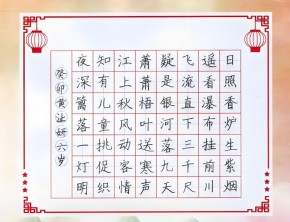 日照香炉生紫烟
遥看瀑布挂前川
飞流直下三千尺
疑是银河落九天
萧萧梧叶送寒声
江上秋风动客情
知有儿童挑促织
夜深篱落一灯明
癸卯黄妍六岁